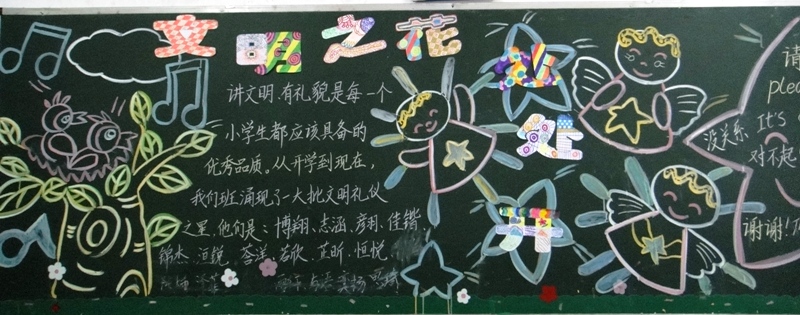 文明之花
处处开
讲文明、有礼貌是每一个
小学生都应该具备的
优秀品质。从开学到现在,
我们班涌现了一大批文明礼仪
之星,他们是:博翔、志涵、彦羽、佳锴
锦木、洹锐、荟洋、若欣、芷昕、恒悦、
请
plea
没关系 It's
对不起!
谢谢!